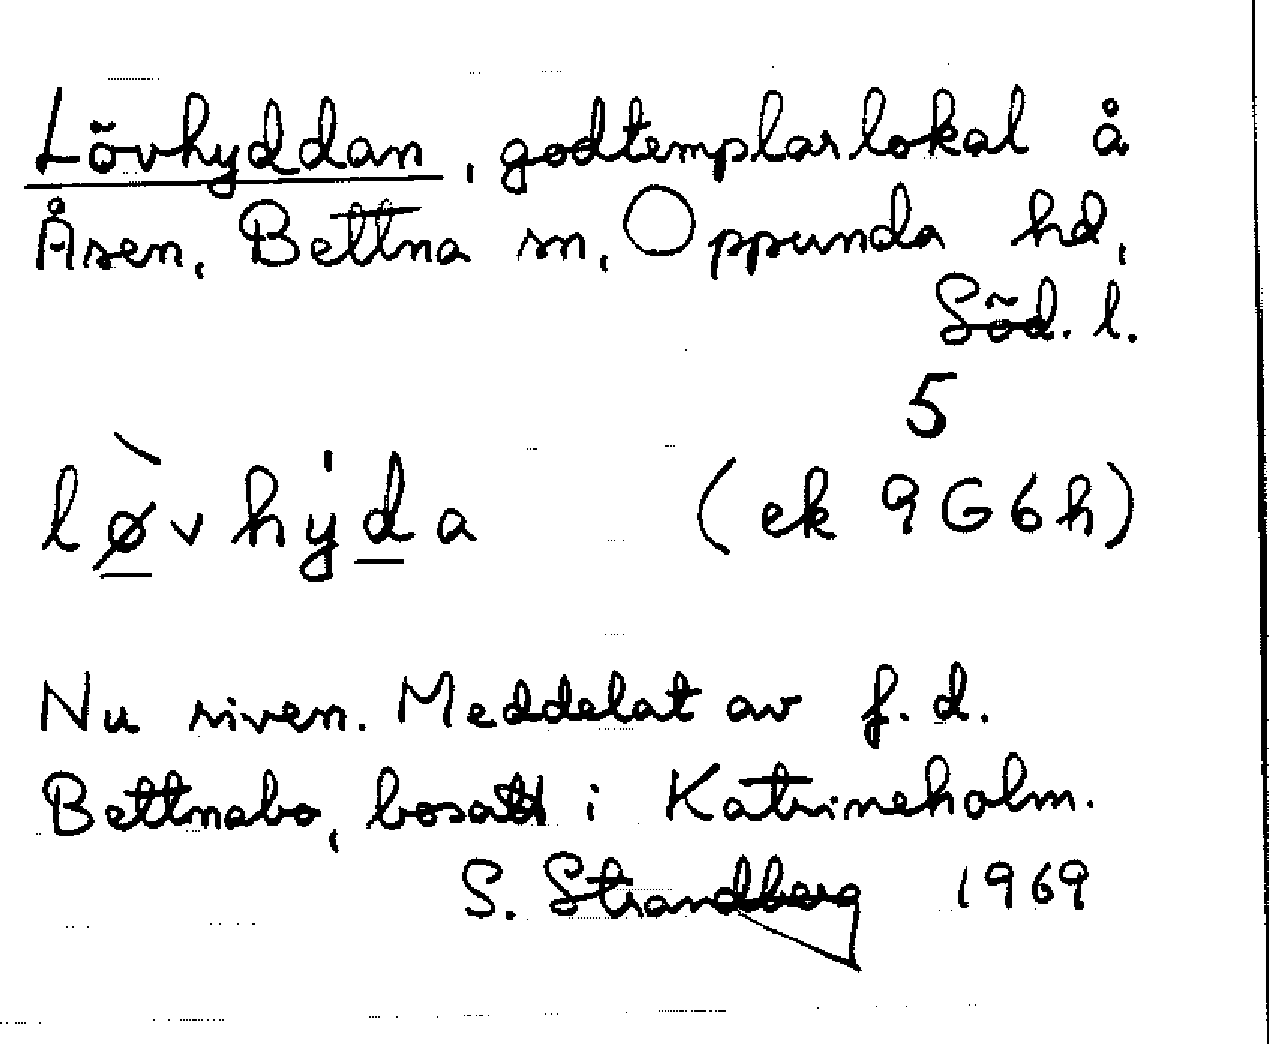 Lövhyddan, godtemplarlokal å
Åsen, Bettna sn, Oppunda hd,
Söd. l.
5
lø̀vhýda (ek 9G6h)
Nu riven. Meddelat av f.d.
Bettnabo, bosatt i Katrineholm.
S. Strandberg 1969